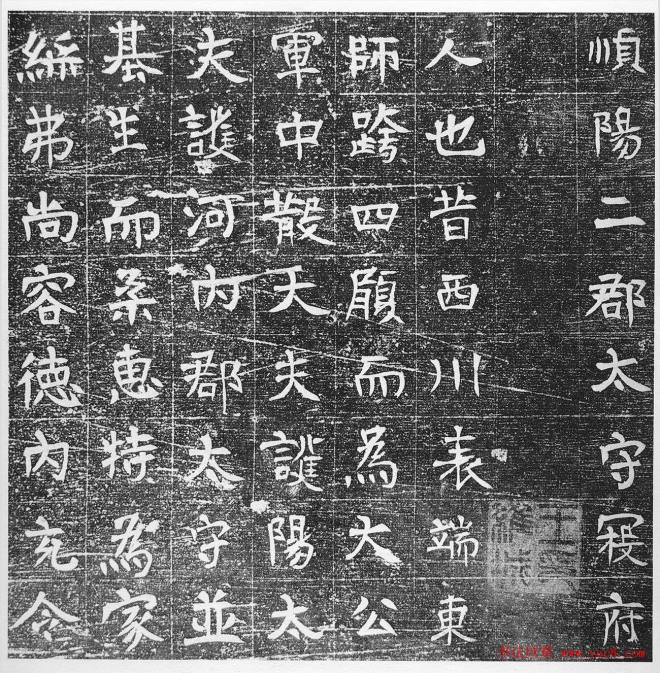 順陽二郡太守寇府
人也昔西川表端東
師跨四履而為大公
軍中散大夫陽太
夫河內郡太守並
基生而柔惠特為家
絲弗尚容德內充令
书法欣赏 www.yac8.com